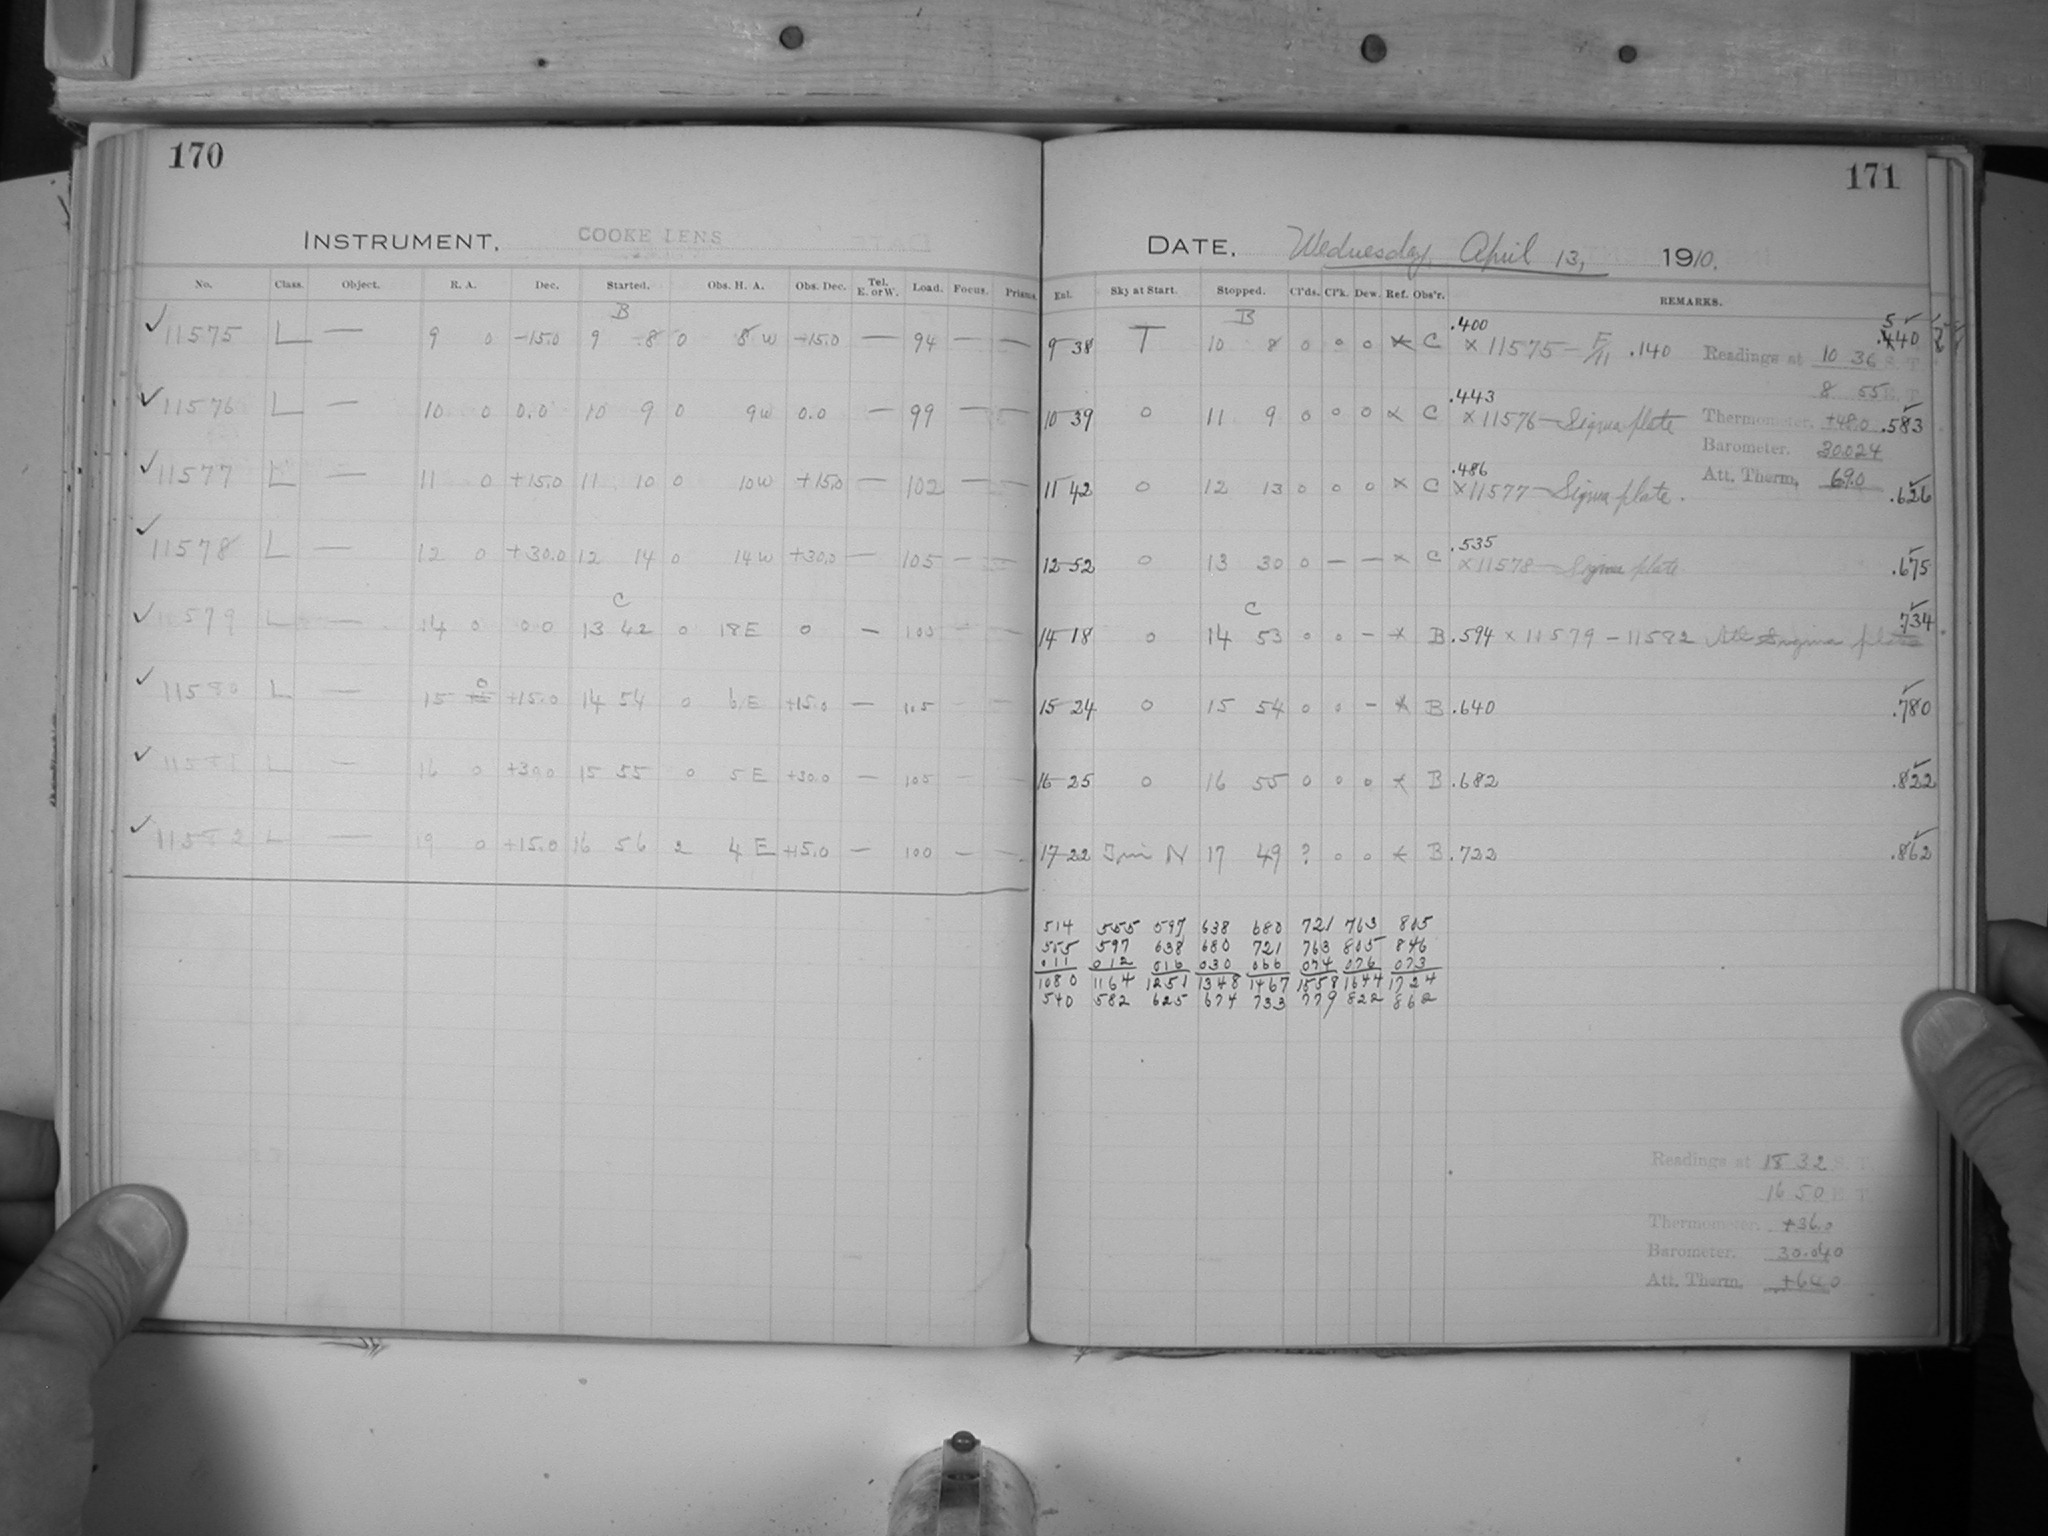 170
INSTRUMENT. COOKE LENS
No. Class. Object. R. A. Dec. Started. Obs. H. A. Obs. Dec. Tel. E. or W. Load. Focus. Prisms.
B
✓ 11575 L — 9 0 -15.0 9 8 0 8 W -15.0 — 94 — —
✓ 11576 L — 10 0 0.0 10 9 0 9 W 0.0 — 99 — —
✓ 11577 L — 11 0 +15.0 11 10 0 10 W +15.0 — 102 — —
✓ 11578 L — 12 0 +30.0 12 14 0 14 W +30.0 — 105 — —
C
✓ 11579 L — 14 0 0 0 13 42 0 18 E 0 — 105 — —
✓ 11580 L — 15 0 +15.0 14 54 0 6 E +15.0 — 105 — —
✓ 11581 L — 16 0 +30.0 15 55 0 5 E +30.0 — 105 — —
✓ 11582 L — 19 0 +15.0 16 56 2 4 E +15.0 — 100 — —
171
DATE. Wednesday, April 13, 1910.
Ent. Sky at Start. Stopped. Cl'ds. Cl'k. Dew. Ref. Obs'r. REMARKS.
B .400 5 ✓
9 38 T 10 8 0 0 0 × C × 11575 — F/11 .140 .440
Readings at 10 36 S. T.
8 55 E. T.
.443
10 39 0 11 9 0 0 0 × C × 11576 — Sigma plate Thermometer. +48.0 .583
Barometer. 30.024
.486
11 42 0 12 13 0 0 0 × C × 11577 — Sigma plate. Att. Therm. 69.0 .626
.535
12 52 0 13 30 0 — — × C × 11578 — Sigma plate .675
C
14 18 0 14 53 0 0 — × B .594 × 11579 - 11582 All Sigma plate 734
15 24 0 15 54 0 0 — × B .640 .780
16 25 0 16 55 0 0 0 × B .682 .822
17 22 N 17 49 ? 0 0 × B .722 .862
514 555 597 638 680 721 763 805
555 597 638 680 721 763 805 846
011 012 016 030 066 074 076 073
1080 1164 1251 1348 1467 1558 1644 1724
540 582 625 674 733 779 822 862
Readings at 18 32 S. T.
16 50 E. T.
Thermometer. +36.0
Barometer. 30.040
Att. Therm. +64.0